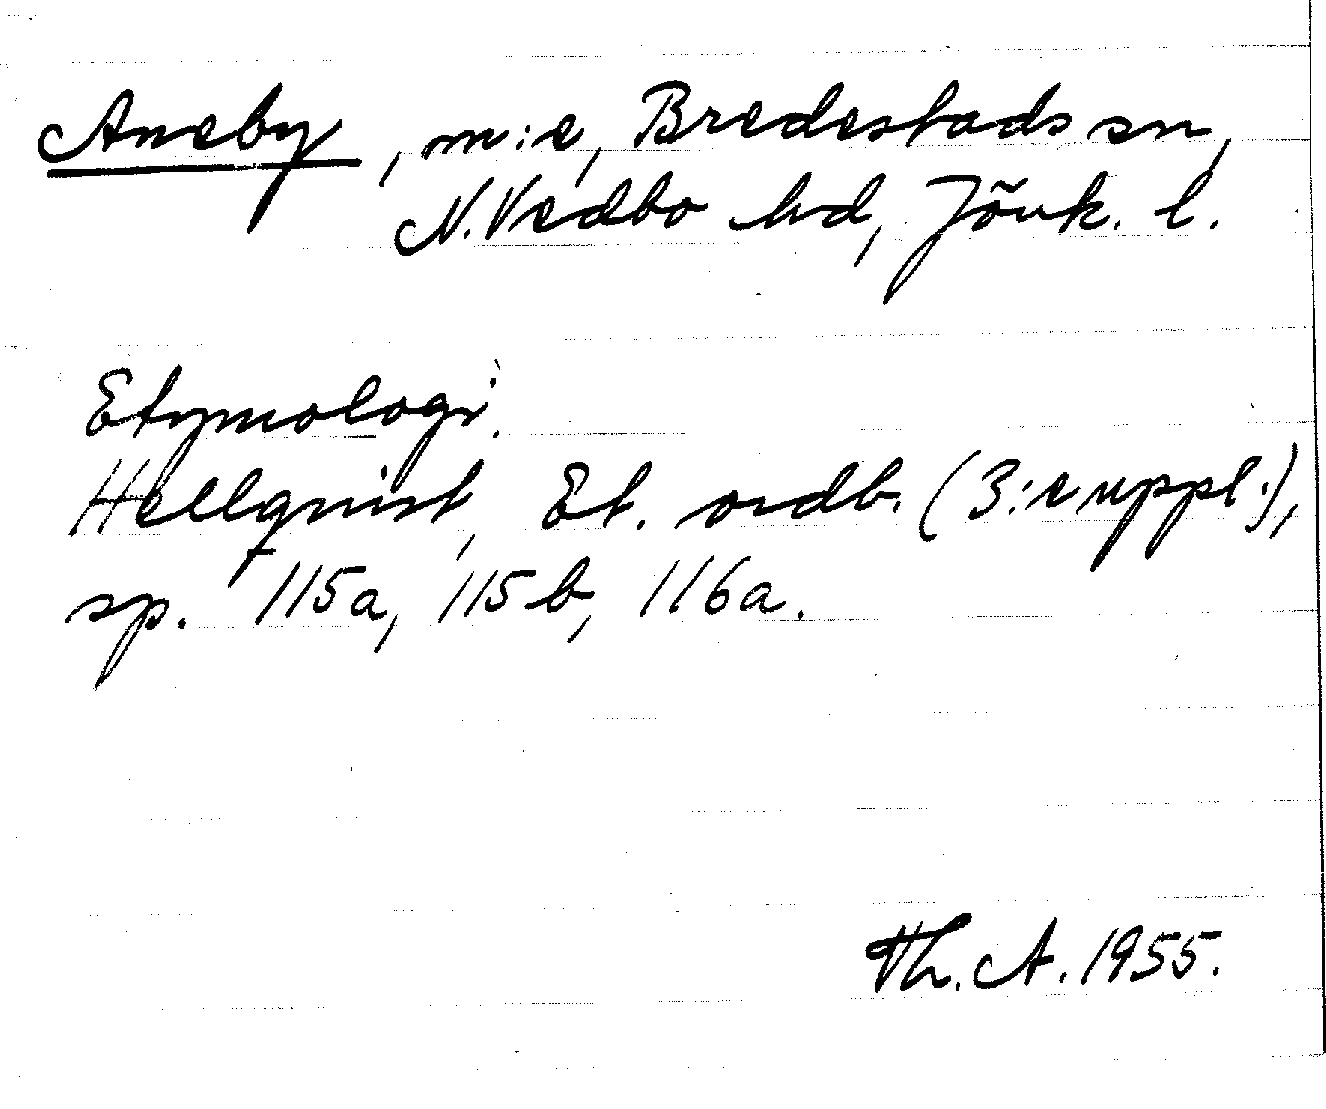 Aneby, m:e, Bredestads sn,
N. Vedbo hd, Jönk. l.
Etymologi.
Hellquist, Et. ordb. (3:e uppl.),
sp. 115a, 115b, 116a.
Th. A. 1955.